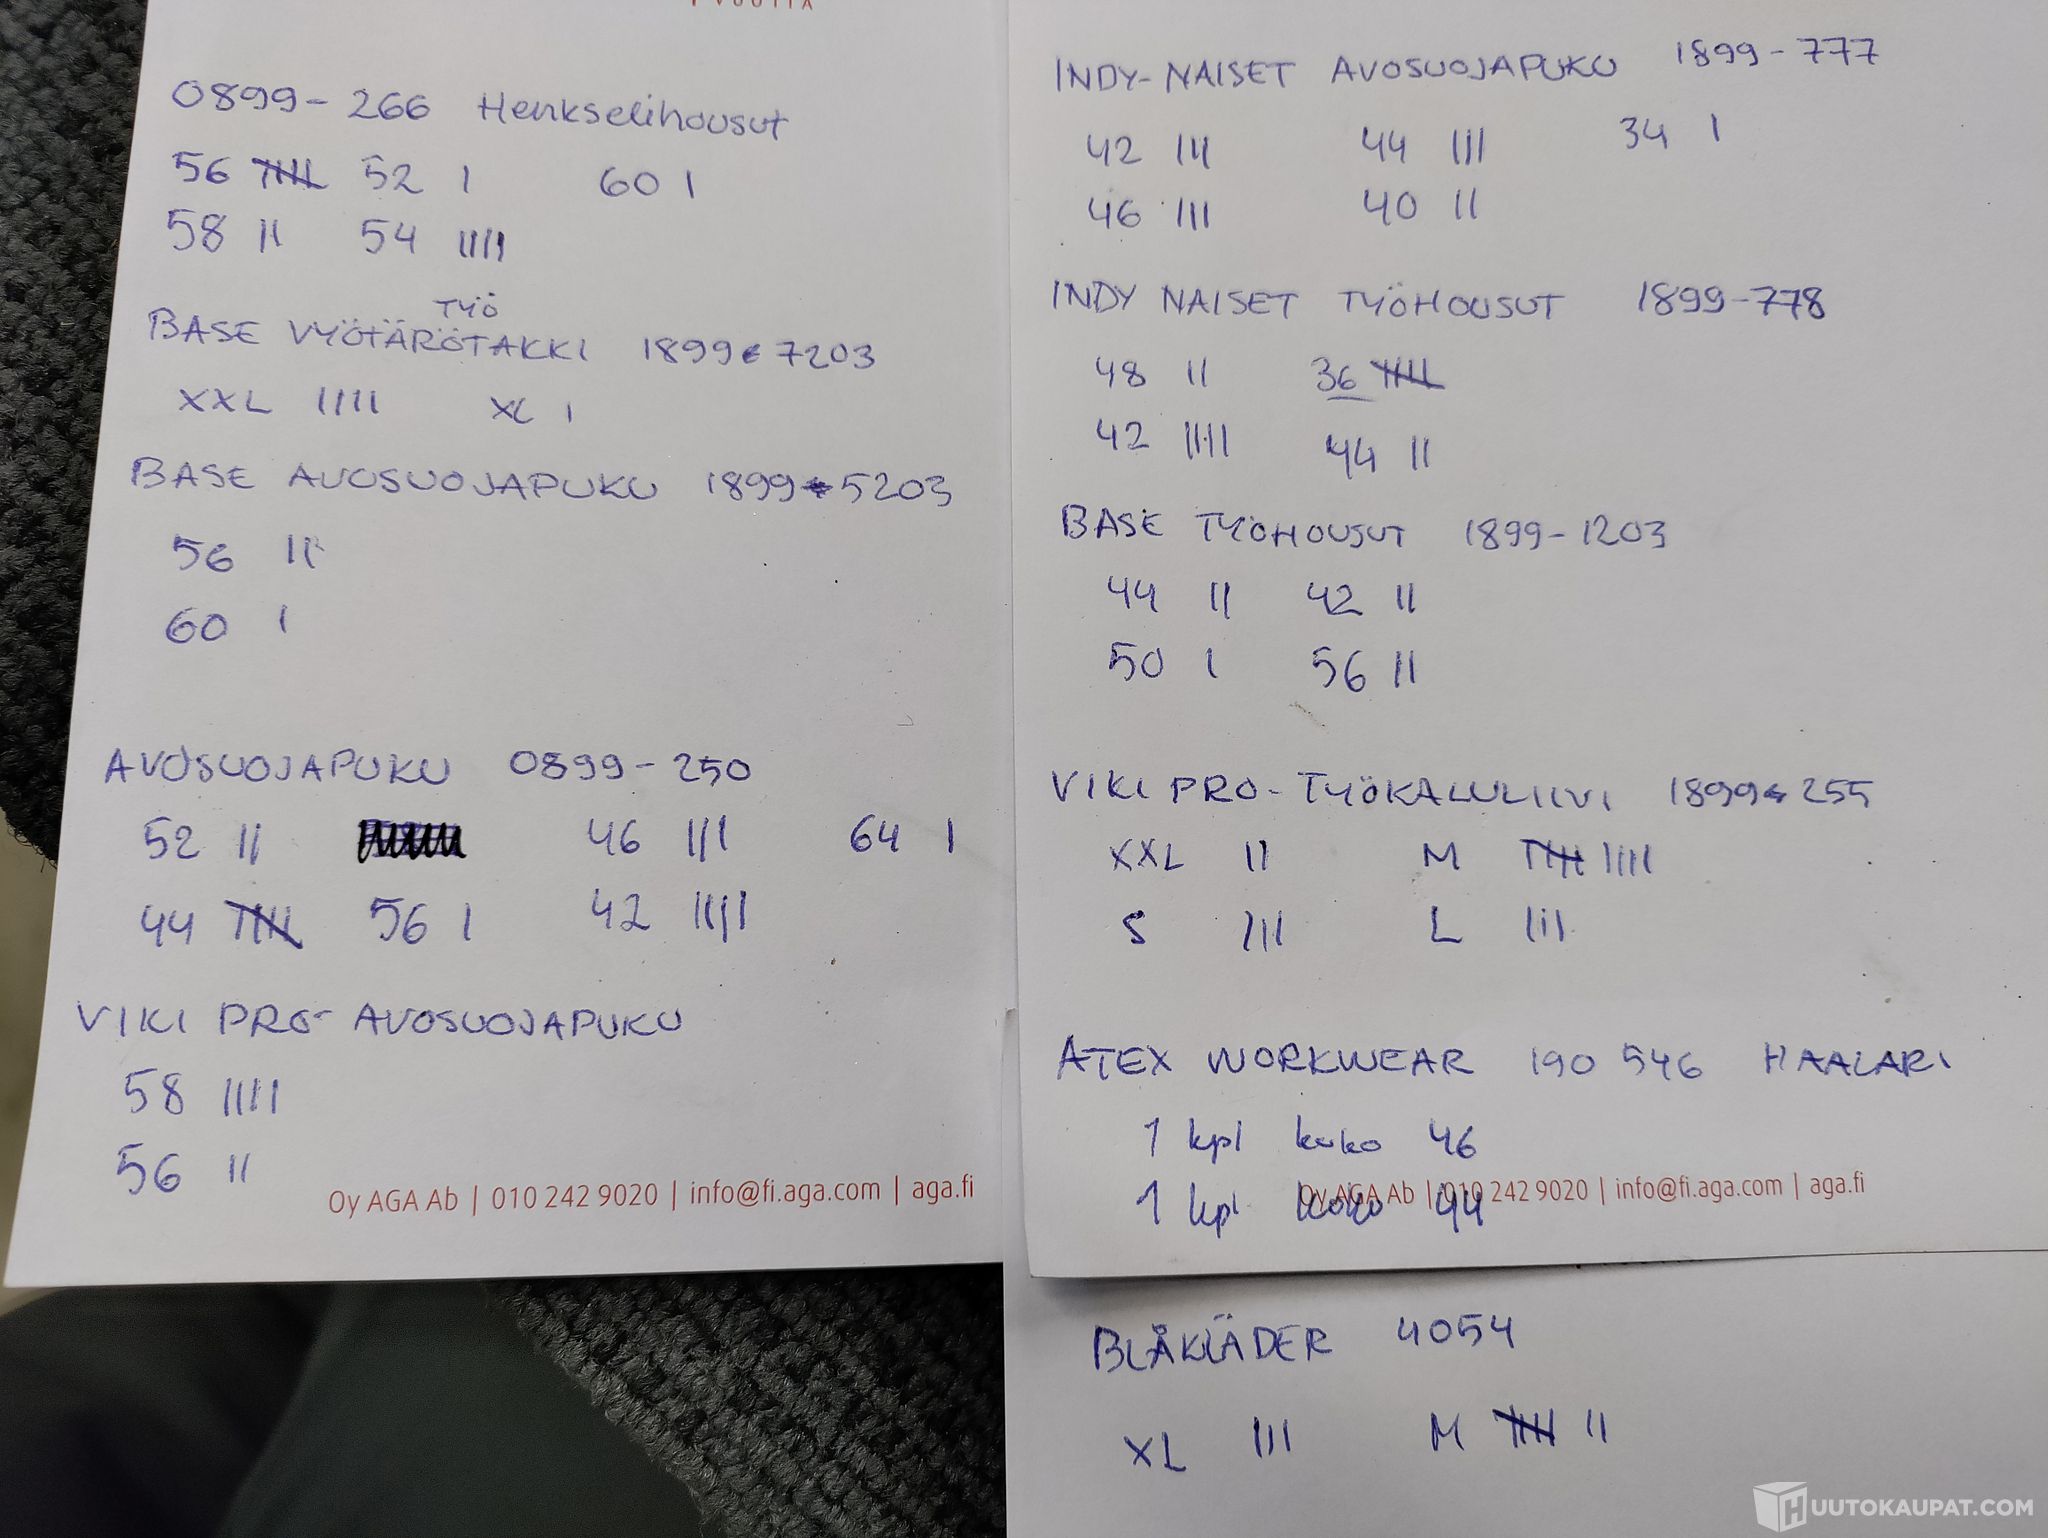 VUOTTA
0899-266 Henkselihousut
56 |||| 52 | 60 |
58 || 54 ||||
TYÖ
BASE VYÖTÄRÖTAKKI 1899-7203
XXL |||| XL |
BASE AVOSUOJAPUKU 1899-5203
56 ||
60 |
AVOSUOJAPUKU 0899-250
52 || 46 ||| 64 |
44 |||| 56 | 42 ||||
VIKI PRO- AVOSUOJAPUKU
58 ||||
56 ||
Oy AGA Ab | 010 242 9020 | info@fi.aga.com | aga.fi
INDY-NAISET AVOSUOJAPUKU 1899-777
42 ||| 44 ||| 34 |
46 ||| 40 ||
INDY NAISET TYÖHOUSUT 1899-778
48 || 36 ||||
42 |||| 44 ||
BASE TYÖHOUSUT 1899-1203
44 || 42 ||
50 | 56 ||
VIKI PRO- TYÖKALULIIVI 1899-255
XXL || M |||| ||||
S ||| L |||
ATEX WORKWEAR 190 546 HAALARI
1 kpl koko 46
1 kpl koko 44
Oy AGA Ab | 010 242 9020 | info@fi.aga.com | aga.fi
BLÅKLÄDER 4054
XL ||| M |||| ||
HUUTOKAUPAT.COM